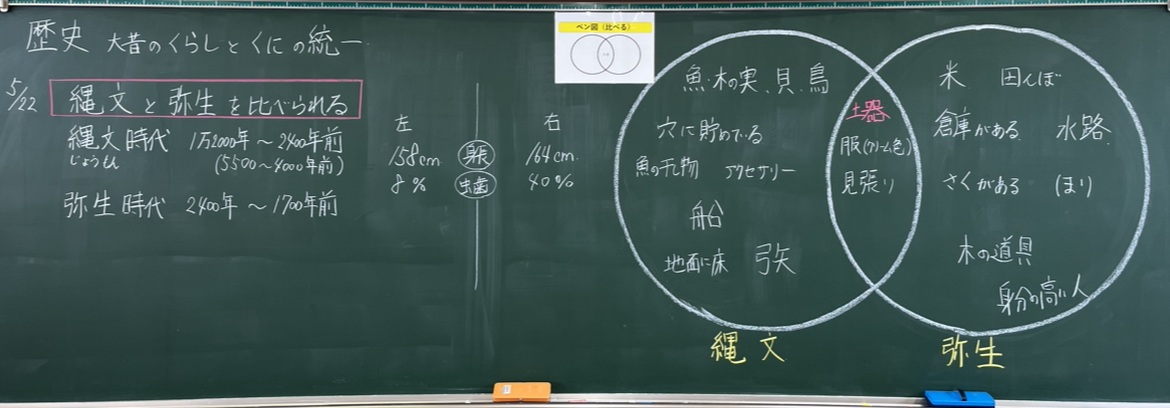 歴史 大昔のくらしとくにの統一
5/22 縄文と弥生を比べられる
縄文時代 1万2000年〜2400年前
じょうもん (5500〜4000年前)
弥生時代 2400年〜1700年前
左 右
158cm 身長 164cm
8% 虫歯 40%
ベン図(比べる)
魚・木の実、貝、鳥
穴に貯めている
魚の干物 アクセサリー
船
地面に床 弓矢
縄文
土器
服(クリーム色)
見張り
米 田んぼ
倉庫がある 水路
さくがある (ほり)
木の道具
身分の高い人
弥生